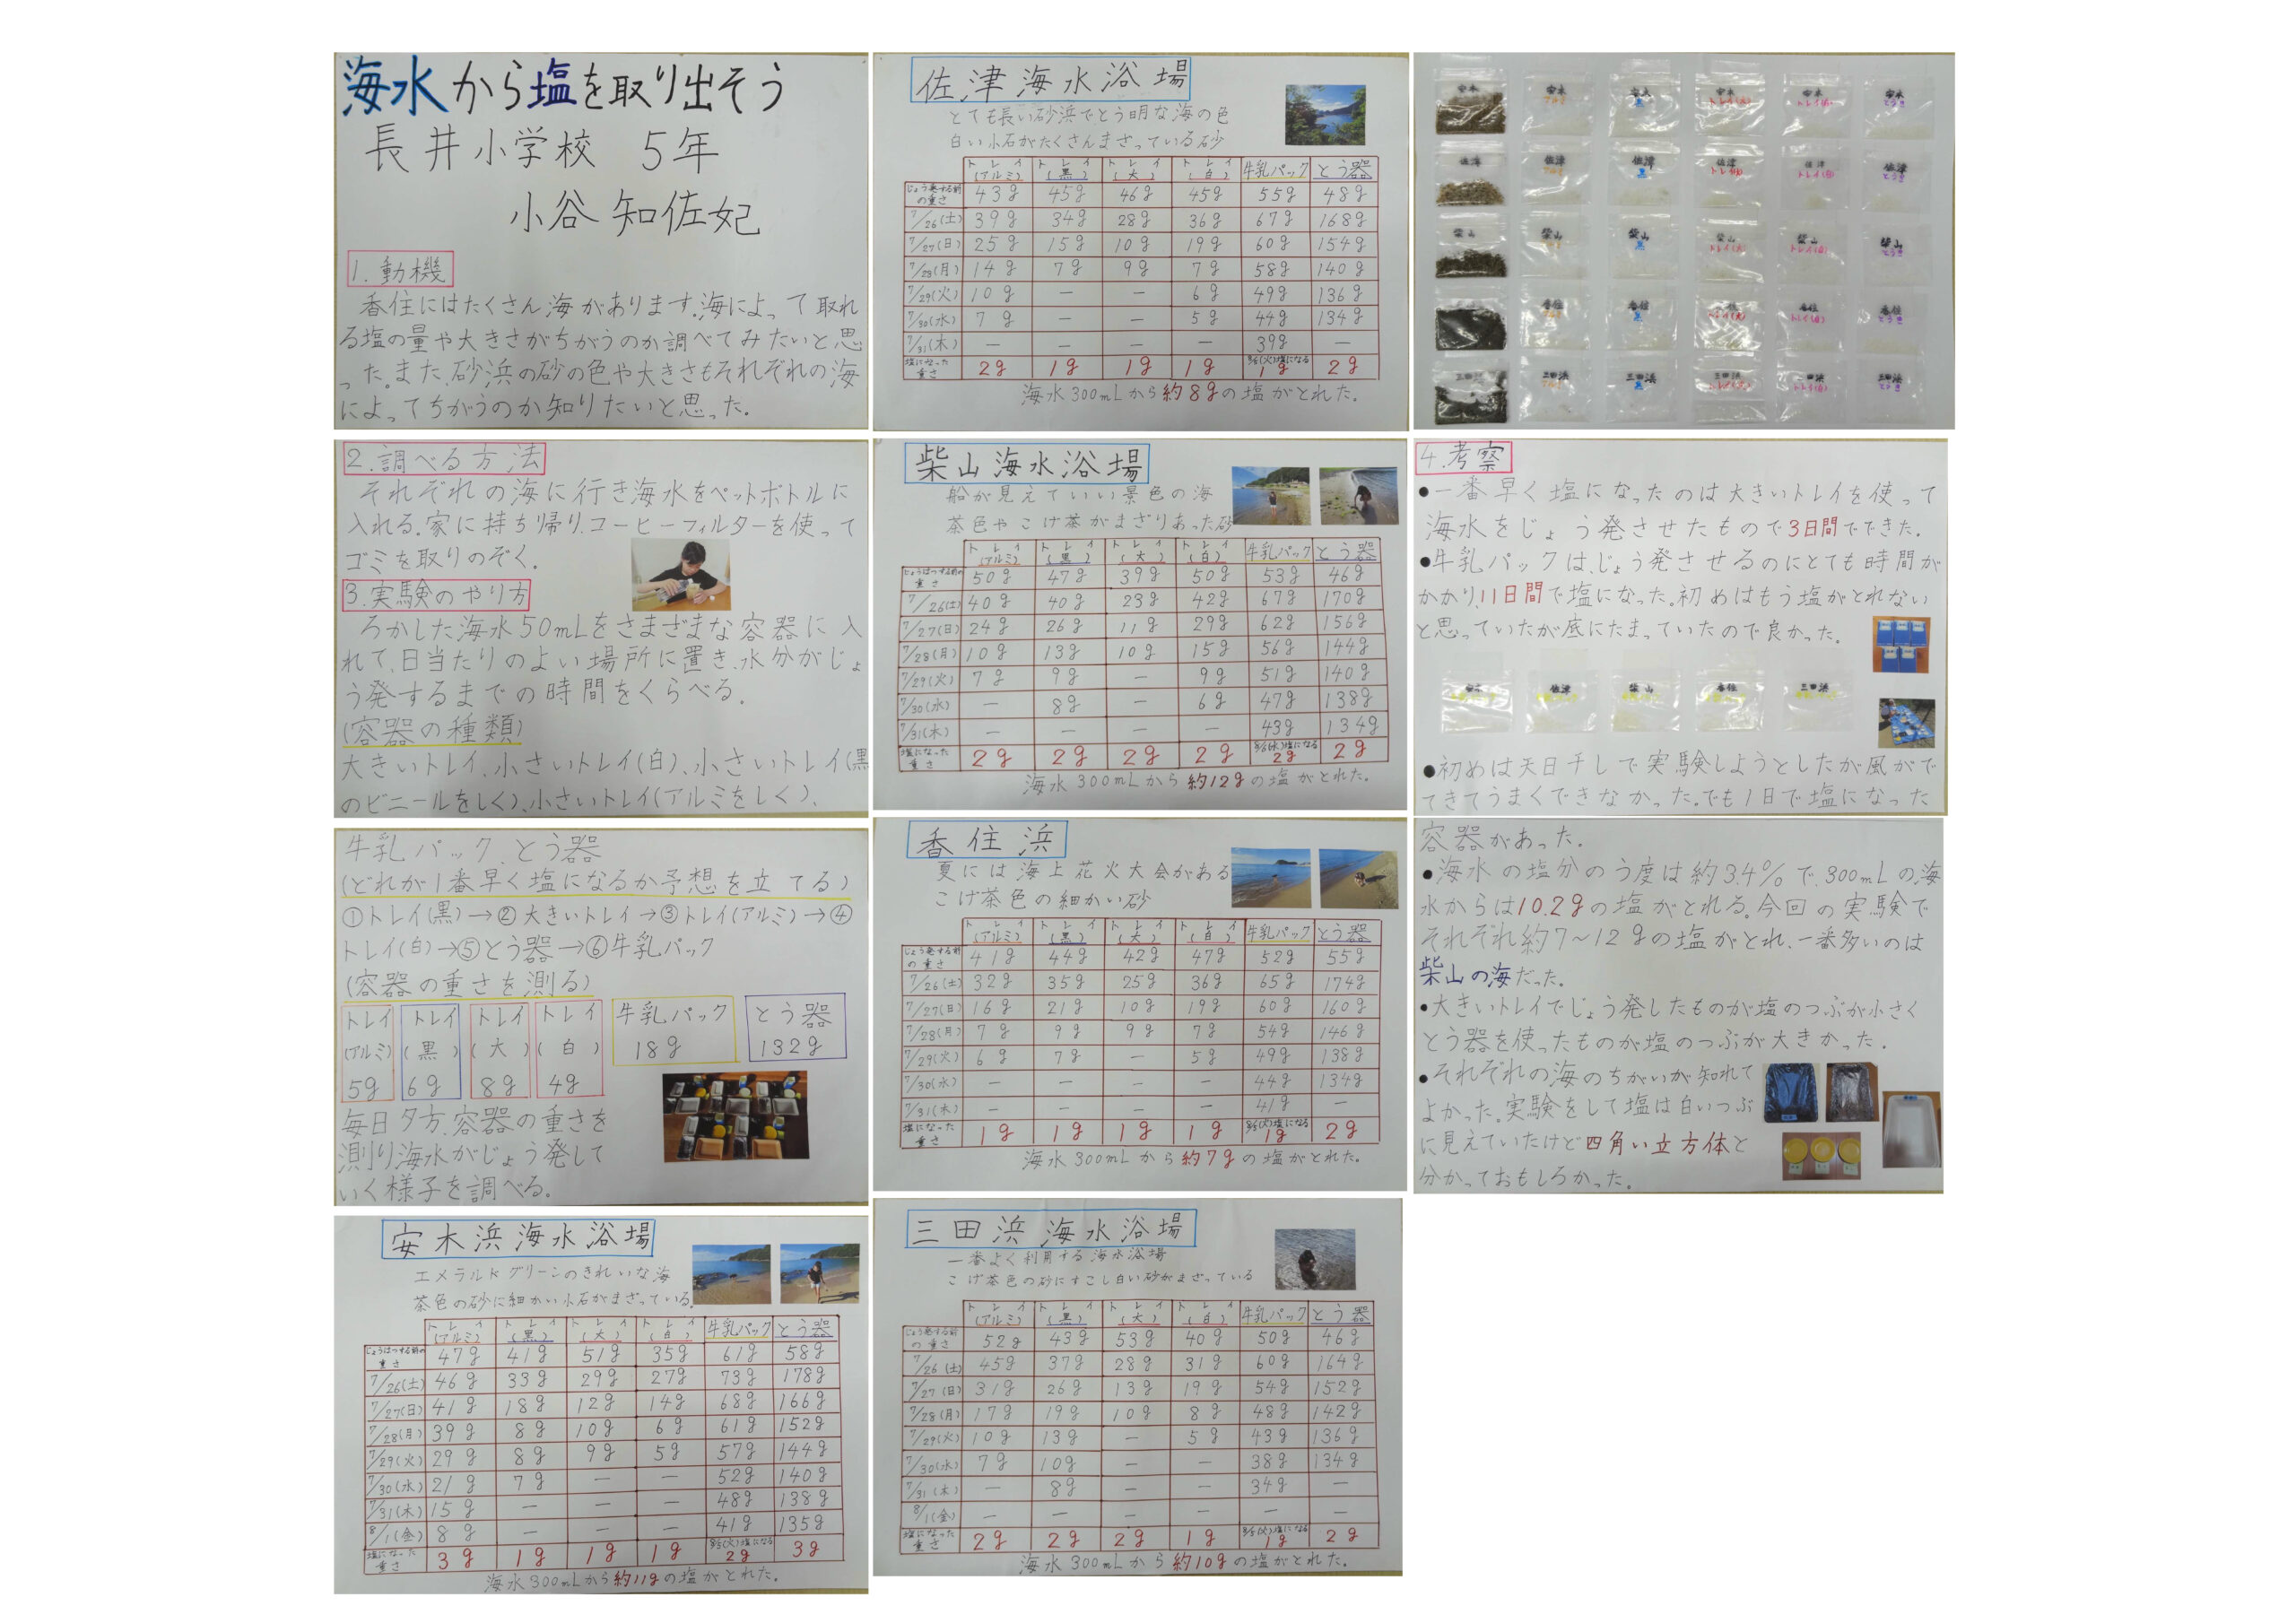 海水から塩を取り出そう
長井小学校 5年
小谷 知佐妃
1.動機
香住にはたくさん海があります。海によって取れ
る塩の量や大きさがちがうのか調べてみたいと思
った。また、砂浜の砂の色や大きさもそれぞれの海
によってちがうのか知りたいと思った。
2.調べる方法
それぞれの海に行き海水をペットボトルに
入れる。家に持ち帰り、コーヒーフィルターを使って
ゴミを取りのぞく。
3.実験のやり方
ろかした海水50mLをさまざまな容器に入
れて、日当たりのよい場所に置き、水分がじょ
う発するまでの時間をくらべる。
(容器の種類)
大きいトレイ、小さいトレイ(白)、小さいトレイ(黒
のビニールをしく)、小さいトレイ(アルミをしく)、
牛乳パック、とう器
(どれが1番早く塩になるか予想を立てる)
①トレイ(黒)→②大きいトレイ→③トレイ(アルミ)→④
トレイ(白)→⑤とう器→⑥牛乳パック
(容器の重さを測る)
トレイ(アルミ) 5g
トレイ(黒) 6g
トレイ(大) 8g
トレイ(白) 4g
牛乳パック 18g
とう器 132g
毎日夕方、容器の重さを
測り海水がじょう発して
いく様子を調べる。
安木浜海水浴場
エメラルドグリーンのきれいな海
茶色の砂に細かい小石がまざっている。
トレイ(アルミ) トレイ(黒) トレイ(大) トレイ(白) 牛乳パック とう器
じょうはつする前の重さ 47g 41g 51g 35g 61g 58g
7/26(土) 46g 33g 29g 27g 73g 178g
7/27(日) 41g 18g 12g 14g 68g 166g
7/28(月) 39g 8g 10g 6g 61g 152g
7/29(火) 29g 8g 9g 5g 57g 144g
7/30(水) 21g 7g — — 52g 140g
7/31(木) 15g — — — 48g 138g
8/1(金) 8g — — — 41g 135g
塩になった重さ 3g 1g 1g 1g 8/5(火)塩になる 2g 3g
海水300mLから約11gの塩がとれた。
佐津海水浴場
とても長い砂浜でとう明な海の色
白い小石がたくさんまざっている砂
トレイ(アルミ) トレイ(黒) トレイ(大) トレイ(白) 牛乳パック とう器
じょう発する前の重さ 43g 45g 46g 45g 55g 48g
7/26(土) 39g 34g 28g 36g 67g 168g
7/27(日) 25g 15g 10g 19g 60g 154g
7/28(月) 14g 7g 9g 7g 58g 140g
7/29(火) 10g — — 6g 49g 136g
7/30(水) 7g — — 5g 44g 134g
7/31(木) — — — — 39g —
塩になった重さ 2g 1g 1g 1g 8/5(火)塩になる 1g 2g
海水300mLから約8gの塩がとれた。
柴山海水浴場
船が見えていい景色の海
茶色やこげ茶がまざりあった砂
トレイ(アルミ) トレイ(黒) トレイ(大) トレイ(白) 牛乳パック とう器
じょうはつする前の重さ 50g 47g 39g 50g 53g 46g
7/26(土) 40g 40g 23g 42g 67g 170g
7/27(日) 24g 26g 11g 29g 62g 156g
7/28(月) 10g 13g 10g 15g 56g 144g
7/29(火) 7g 9g — 9g 51g 140g
7/30(水) — 8g — 6g 47g 138g
7/31(木) — — — — 43g 134g
塩になった重さ 2g 2g 2g 2g 塩になる 2g 2g
海水300mLから約12gの塩がとれた。
香住浜
夏には海上花火大会がある
こげ茶色の細かい砂
トレイ(アルミ) トレイ(黒) トレイ(大) トレイ(白) 牛乳パック とう器
じょう発する前の重さ 41g 44g 42g 47g 52g 55g
7/26(土) 32g 35g 25g 36g 65g 174g
7/27(日) 16g 21g 10g 19g 60g 160g
7/28(月) 7g 9g 9g 7g 54g 146g
7/29(火) 6g 7g — 5g 49g 138g
7/30(水) — — — — 44g 134g
7/31(木) — — — — 41g —
塩になった重さ 1g 1g 1g 1g 8/5(火)塩になる 1g 2g
海水300mLから約7gの塩がとれた。
三田浜海水浴場
一番よく利用する海水浴場
こげ茶色の砂にすこし白い砂がまざっている
トレイ(アルミ) トレイ(黒) トレイ(大) トレイ(白) 牛乳パック とう器
じょう発する前の重さ 52g 43g 53g 40g 50g 46g
7/26(土) 45g 37g 28g 31g 60g 164g
7/27(日) 31g 26g 13g 19g 54g 152g
7/28(月) 17g 19g 10g 8g 48g 142g
7/29(火) 10g 13g — 5g 43g 136g
7/30(水) 7g 10g — — 38g 134g
7/31(木) — 8g — — 34g —
8/1(金) — — — — — —
塩になった重さ 2g 2g 2g 1g 8/5(火)塩になる 1g 2g
海水300mLから約10gの塩がとれた。
安木 安木 アルミ 安木 黒 安木 トレイ(大) 安木 トレイ(白) 安木 とうき
佐津 佐津 アルミ 佐津 黒 佐津 トレイ(大) 佐津 トレイ(白) 佐津 とうき
柴山 柴山 アルミ 柴山 黒 柴山 トレイ(大) 柴山 トレイ(白) 柴山 とうき
香住 アルミ 香住 黒 香住 トレイ(大) 香住 トレイ(白) 香住 とうき
三田浜 三田浜 アルミ 三田浜 黒 三田浜 トレイ(大) 三田浜 トレイ(白) 三田浜 とうき
4.考察
●一番早く塩になったのは大きいトレイを使って
海水をじょう発させたもので3日間でできた。
●牛乳パックは、じょう発させるのにとても時間が
かかり、11日間で塩になった。初めはもう塩がとれない
と思っていたが底にたまっていたので良かった。
安木 佐津 柴山 香住 三田浜
●初めは天日干しで実験しようとしたが風がで
てきてうまくできなかった。でも1日で塩になった
容器があった。
●海水の塩分のう度は約3.4%で、300mLの海
水からは10.2gの塩がとれる。今回の実験で
それぞれ約7〜12gの塩がとれ、一番多いのは
柴山の海だった。
●大きいトレイでじょう発したものが塩のつぶが小さく
とう器を使ったものが塩のつぶが大きかった。
●それぞれの海のちがいが知れて
よかった。実験をして塩は白いつぶ
に見えていたけど四角い立方体と
分かっておもしろかった。